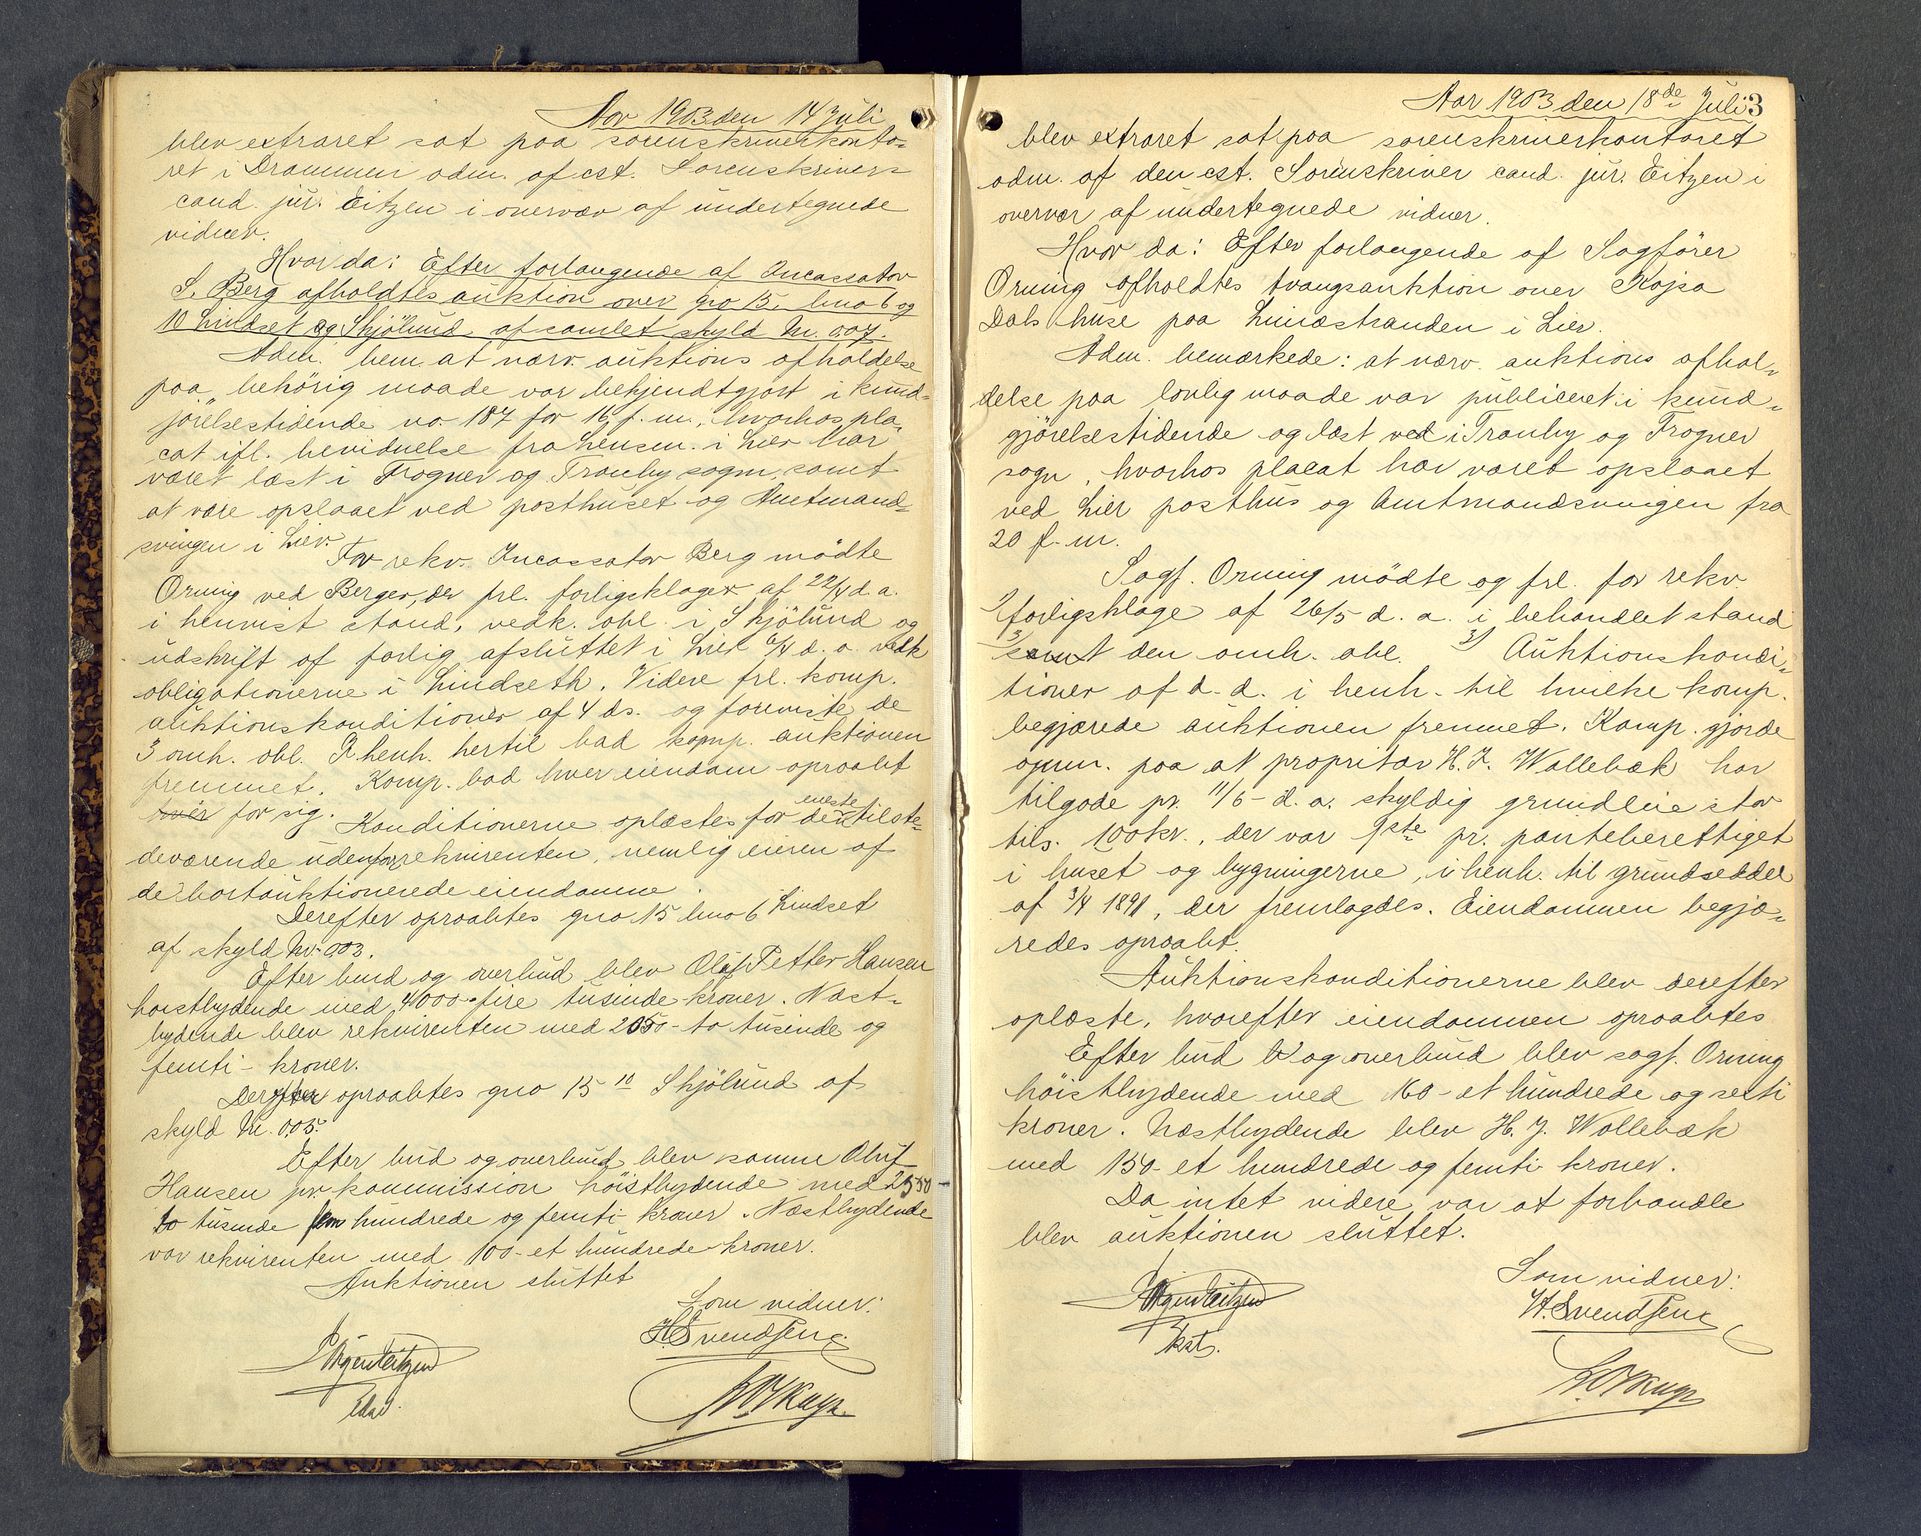 Aar 1903 den 14 juli
blev extraret sat paa sorenskriverkonto-
ret i Drammen adm. af cst. Sorenskriver
cand. jur. Eitzen i overvær af undertegnede
vidner.
Hvor da: Efter forlangende af Incassator
S. Berg afholdtes auktion over gno 15, bno 6 og
10 Lindset og Skjölund af samlet skyld M. 007.
Adm. bem. at nærv. auktions afholdelse
paa behörig maade var bekjendtgjort i kund-
jörelsestidende no. 187 for 16 f. m., hvorhos pla-
cat ifl. bevidnelse fra Lensm. i Lier har
været læst i Frogner og Tranby sogn samt
at være opslaaet ved posthuset og Amtmand-
svingen i Lier.
For rekv. Incassator Berg mödte
Orning ved Berger, der frl. forligsklager af 22/4 d. a.
i henvist stand, vedk. obl. i Skjölund og
udskrift af forlig afsluttet i Lier 6/4 d. a. vedk
obligationerne i Lindseth. Videre frl. komp.
auktionskonditioner af 4 ds. og foreviste de
3 omh. obl. I henh. hertil bad komp. auktionen
fremmet. Komp. bad hver eiendom opraabt
hver for sig.
Konditionerne oplæstes for den eneste tilste-
deværende udenfor rekvirenten, nemlig eieren af
de bortauktionerede eiendomme.
Derefter opraabtes gno 15 bno 6 Lindset
af skyld M. 003.
Efter bud og overbud blev Oluf Petter Hansen
höistbydende med 4000-fire tusinde kroner. Næst-
bydende blev rekvirenten med 2050- to tusinde og
femti- kroner.
Derefter opraabtes gno 15 10 Skjölund af
skyld M. 005.
Efter bud og overbud blev samme Oluf
Hansen pr. kommission höistbydende med 2550-
to tusinde fem hundrede og femti kroner. Næstbydende
var rekvirenten med 100- et hundrede kroner.
Auktionen sluttet
Som vidner:
H. Svendsen
Jörgen Eitzen
Aar 1903 den 18de Juli 3
blev extraret sat paa sorenskriverkontoret
adm. af den cst. Sorenskriver cand. jur. Eitzen i
overvær af undertegnede vidner.
Hvor da: Efter forlangende af Sagförer
Orning afholdtes tvangsauktion over Kajsa
Dals huse paa Linnæstranden i Lier.
Adm. bemærkede: at nærv. auktions afhol-
delse paa lovlig maade var publiceret i kund-
gjörelsestidende og læst ved i Tranby og Frogner
sogn, hvorhos placat har været opslaaet
ved Lier posthus og Amtmandsvingen fra
20 f. m.
Sagf. Orning mödte og frl. for rekv.
1/ forligsklage af 26/5 d. a. i behandlet stand
2/ samt den omh. obl. 3/ Auktionskondi-
tioner af d. d. i henh. til hvilke komp.
begjærede auktionen fremmet. Komp. gjorde
opm. paa at propritær H. J. Wollebæk har
tilgode pr. 11/6- d. a. skyldig grundleie stor
tils. 100 kr., der var 1ste pr. panteberettiget
i huset og bygningerne, i henh. til grundseddel
af 3/4 1891, der fremlagdes. Eiendommen begjæ-
redes opraabt.
Auktionskonditionerne blev derefter
oplæste, hvorefter eiendommen opraabtes
Efter bud og overbud blev sagf. Orning
höistbydende med 160- et hundrede og seksti
kroner. Næstbydende blev H. J. Wollebæk
med 150- et hundrede og femti kroner.
Da intet videre var at forhandle
blev auktionen sluttet.
Som vidner:
H. Svendsen
Jörgen Eitzen